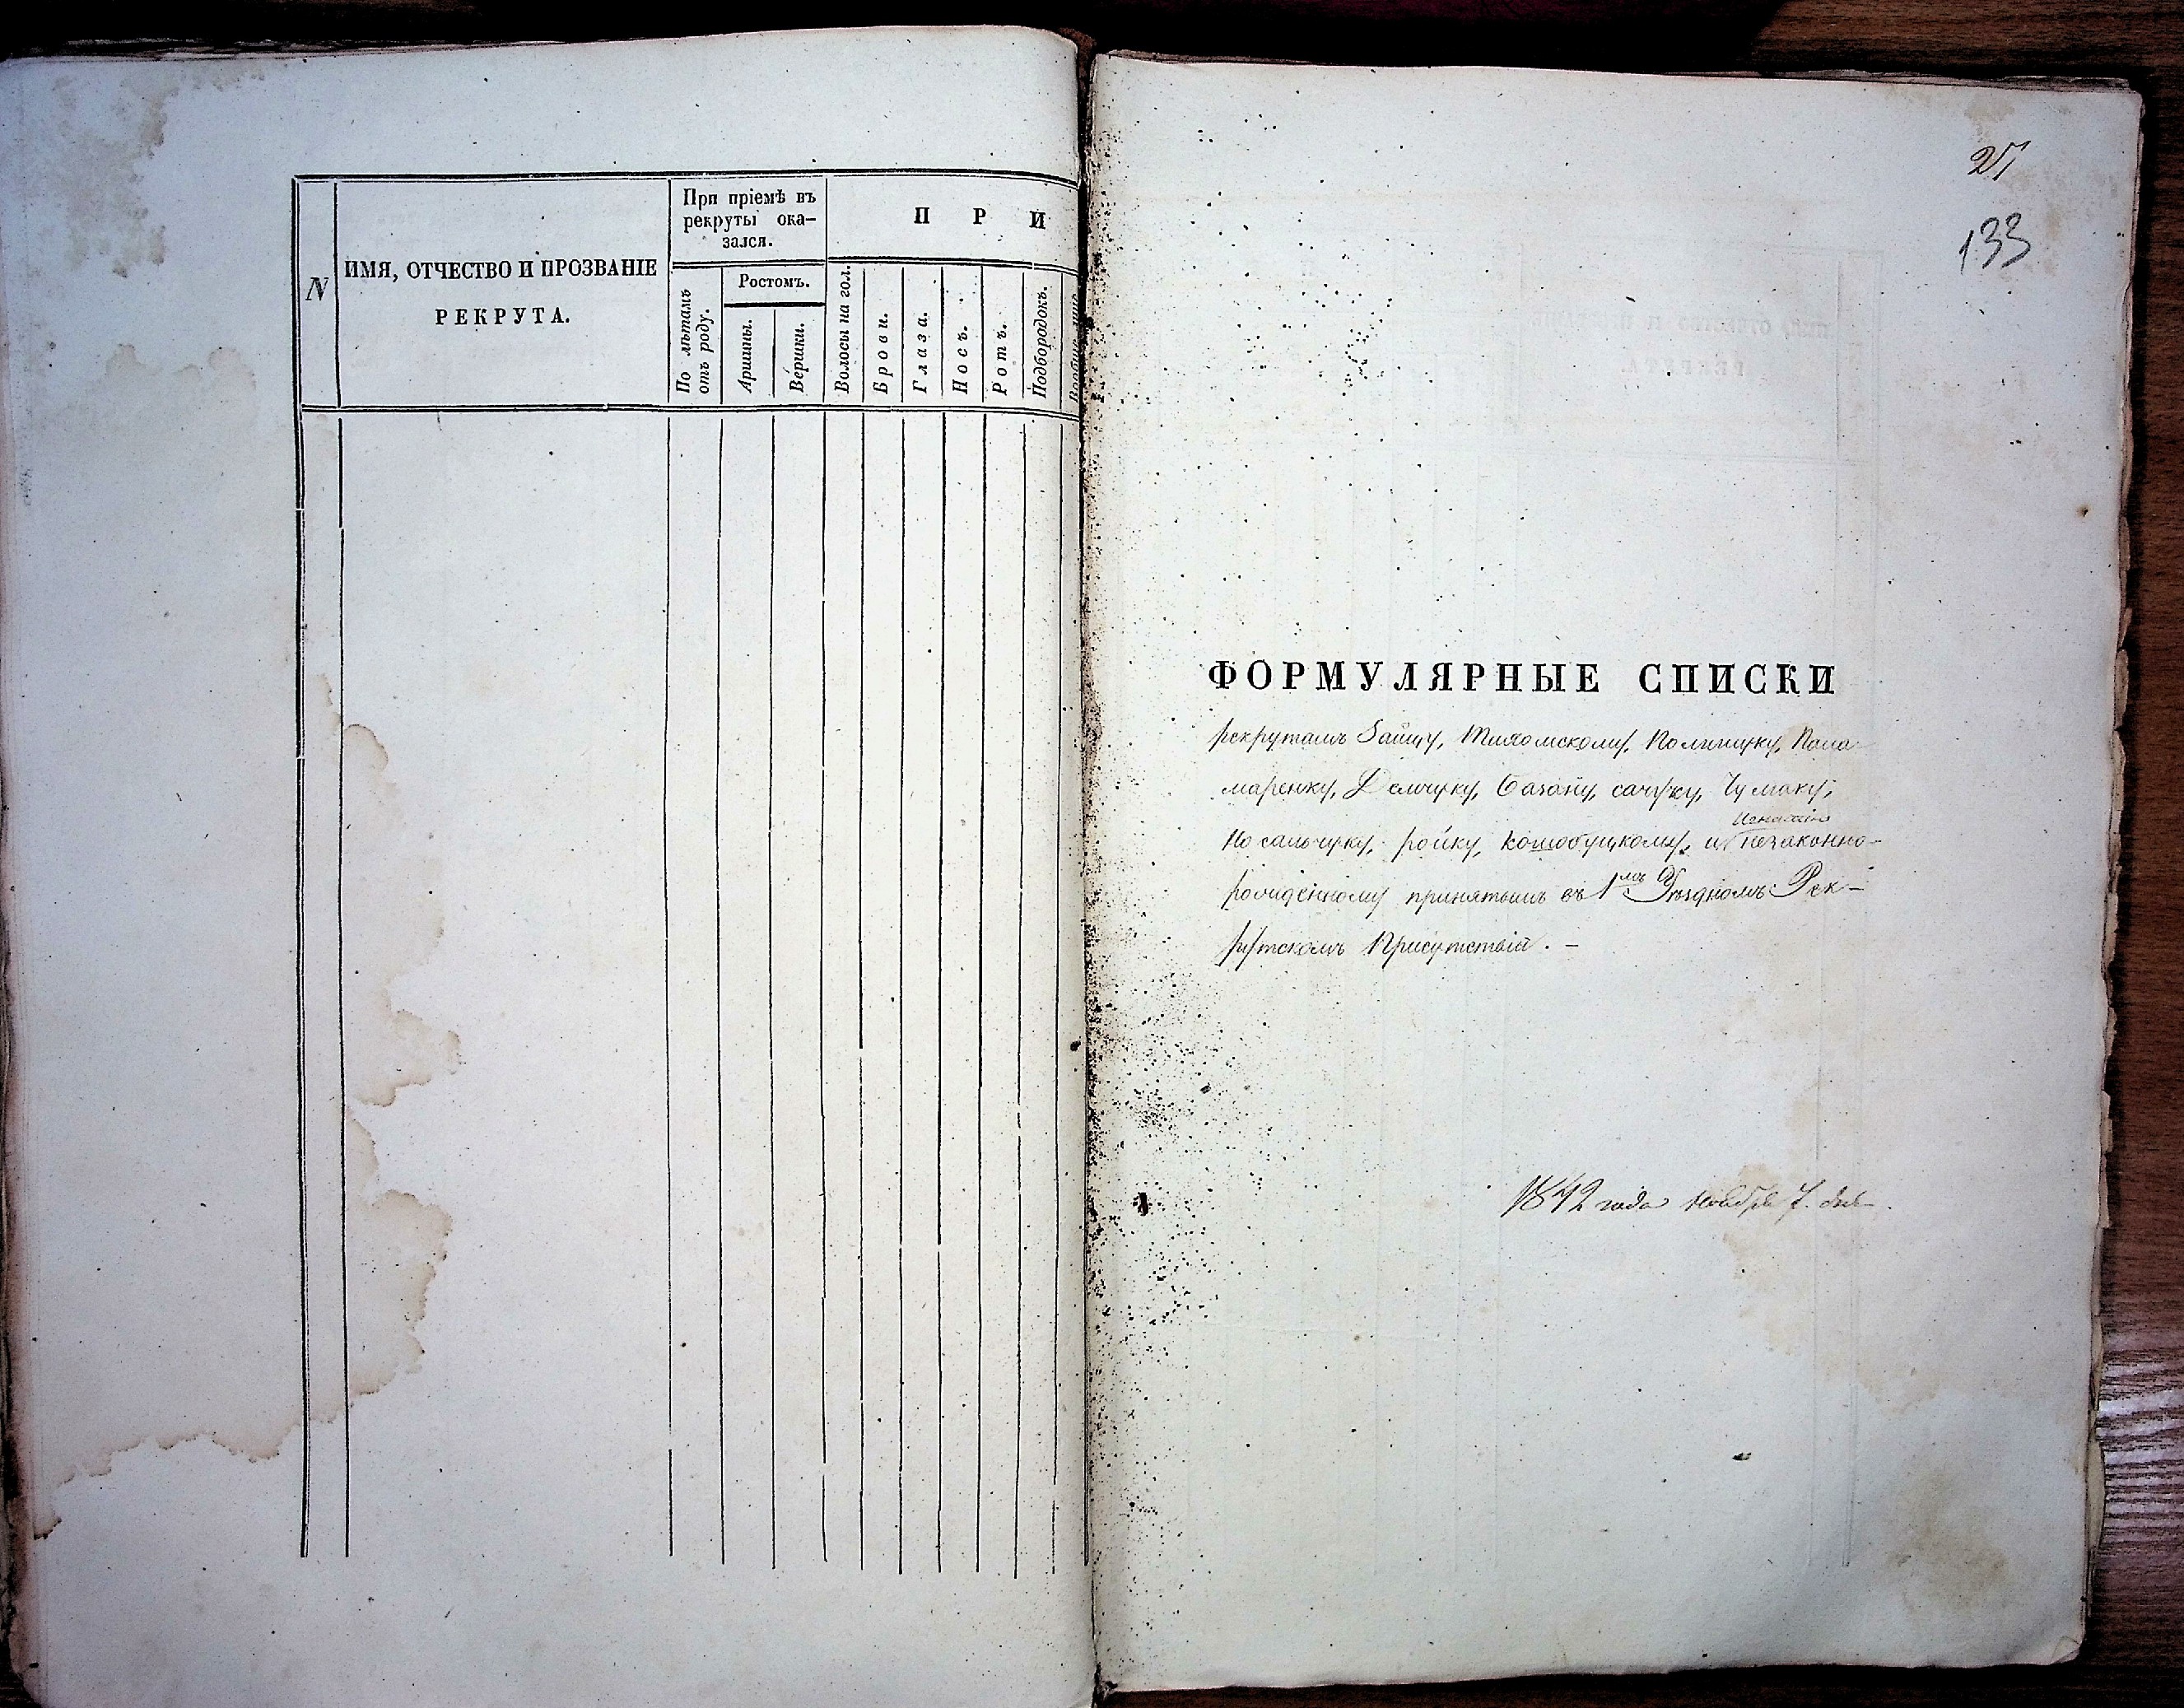 N
ИМЯ, ОТЧЕСТВО И ПРОЗВАНІЕ
РЕКРУТА.
При пріемѣ въ
рекруты ока-
зался.
По лѣтамъ
отъ роду.
Ростомъ.
Аршины.
Вершки.
П Р И
Волосы на гол.
Брови.
Глаза.
Носъ.
Ротъ.
Подбородокъ.
27
133
ФОРМУЛЯРНЫЕ СПИСКИ
рекрутамъ Зайцу, Полищуку, Пона-
маренку, Демчуку, Базану, сачуку, Чумаку,
Носальчуку, ройку, кошобуцкому, и незаконно-
рожденному принятымъ въ 1мъ Уѣздномъ Рек-
рутскомъ Присутствіи. –
1842 года Ноября 7. дня